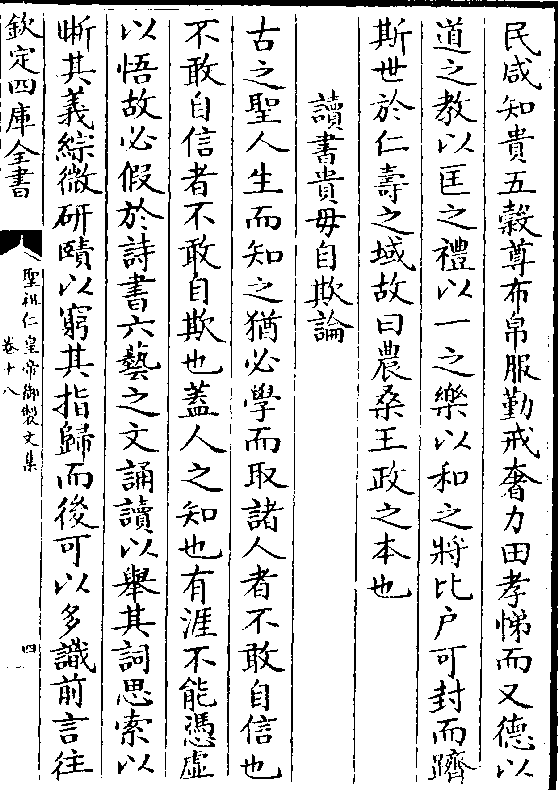 民咸知貴五榖尊布帛服勤戒奢力田孝悌而又德以
道之教以匡之禮以一之樂以和之將比户可封而躋
斯世於仁壽之域故曰農桑王政之本也
讀書貴毋自欺論
古之聖人生而知之猶必學而取諸人者不敢自信也
不敢自信者不敢自欺也蓋人之知也有涯不能憑虛
以悟故必假於詩書六藝之文誦讀以舉其詞思索以
晰其義綜微研賾以窮其指歸而後可以多識前言往
欽定四庫全書
聖祖仁皇帝御製文集
卷十八
四